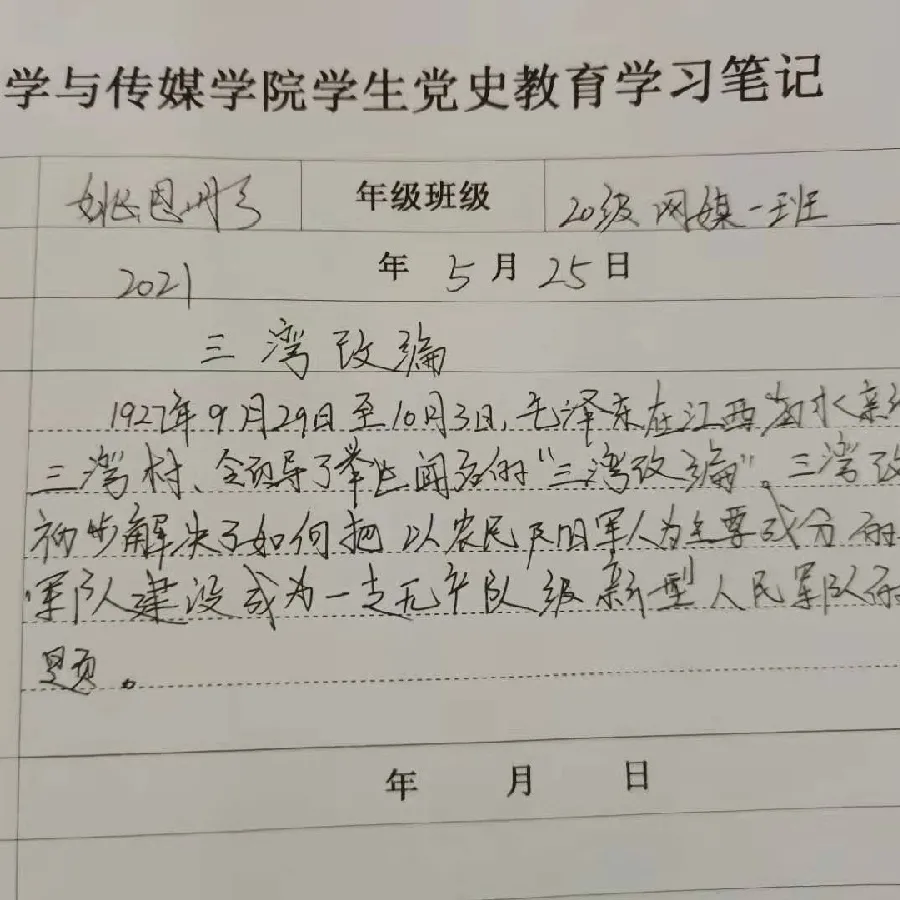 学与传媒学院学生党史教育学习笔记
姚恩彤 年级班级 20级网媒一班
2021 年 5 月 25 日
三湾改编
1927年9月29日至10月3日,毛泽东在江西永新
三湾村、领导了举世闻名的“三湾改编”。三湾改
初步解决了如何把以农民及旧军人为主要成分的
军队建设成为一支无产级新型人民军队的
题。
年 月 日